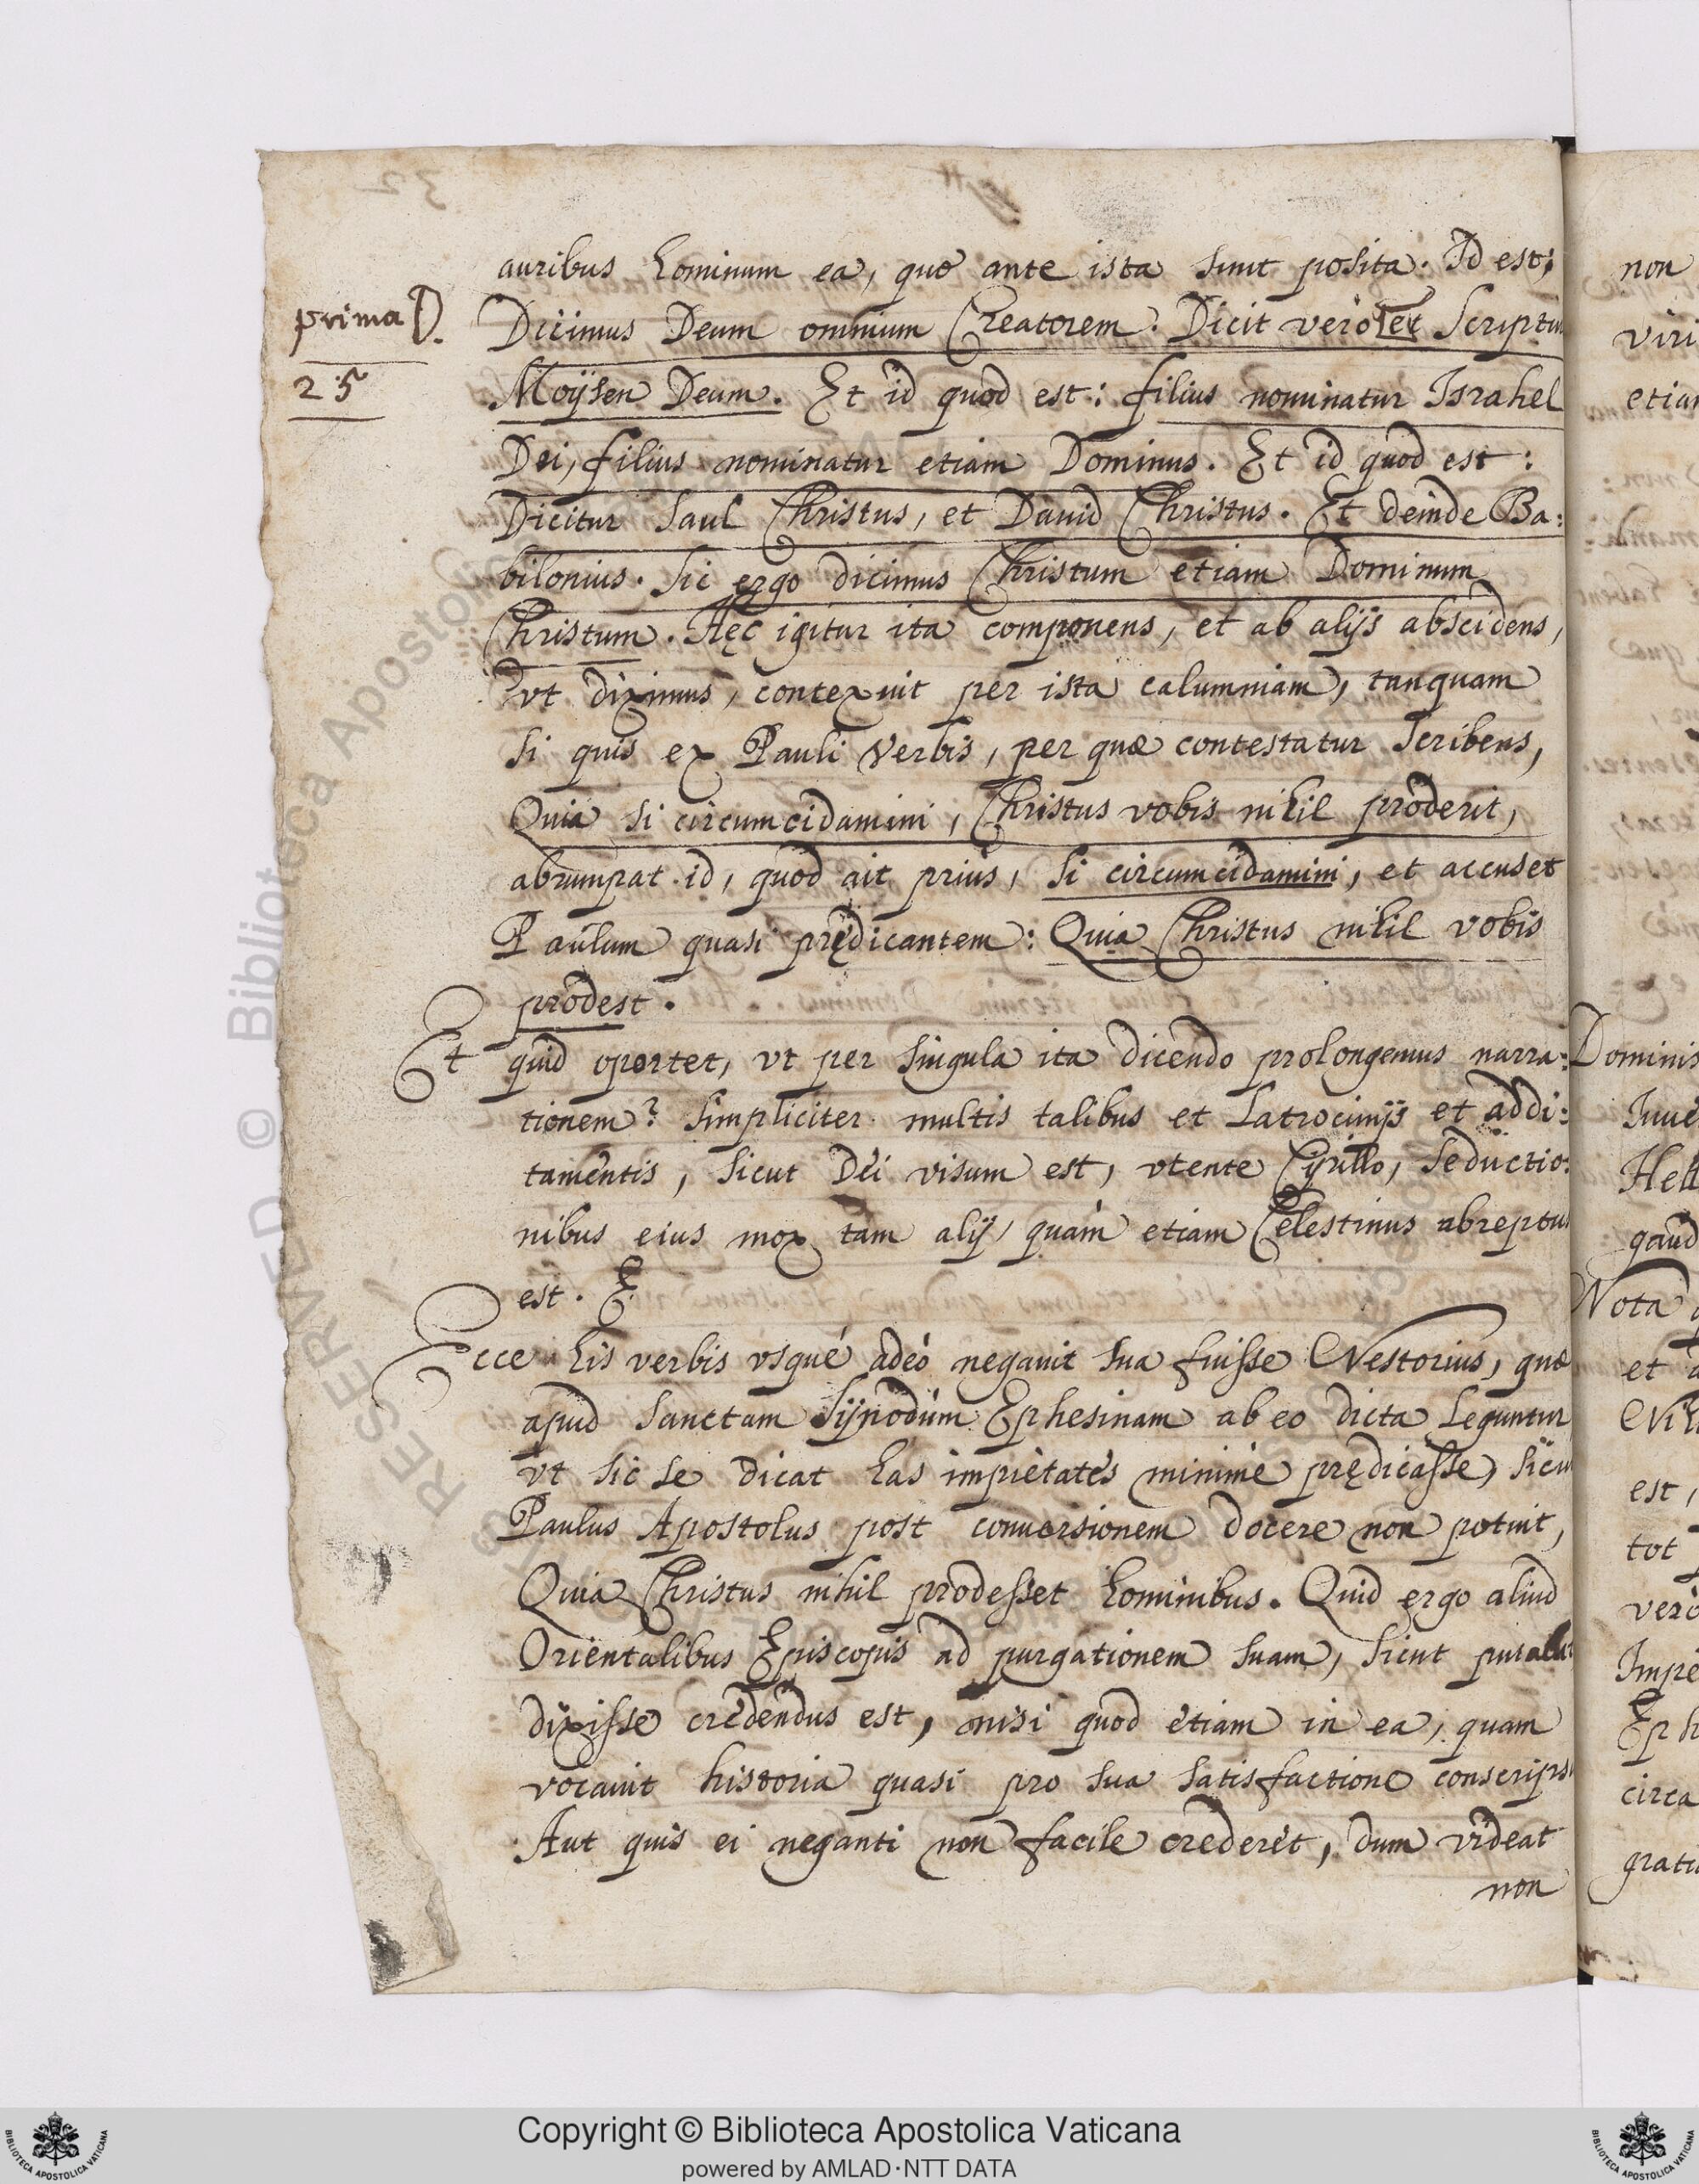 auribus hominum ea, quæ ante ista sunt posita. Id est;
prima D.
Dicimus Deum omnium Creatorem. Dicit verò et Scriptu
25
Moÿsen Deum. Et id quod est: filius nominatur Israhel
Dei, filius nominatur etiam Dominus. Et id quod est:
Dicitur Saul Christus, et Dauid Christus. Et deinde Ba:
bilonius. Sic ergo dicimus Christum etiam Dominum
Christum. Hęc igitur ita componens, et ab alijs abscidens,
vt diximus, contexuit per ista calumniam, tanquam
si quis ex Pauli verbis, per quæ contestatur scribens,
Quia si circumcidamini, Christus vobis nihil proderit,
abrumpat id, quod ait prius, si circumcidamini, et accuset
Paulum quasi prędicantem: Quia Christus nihil vobis
prodest.
Et quid oportet, vt per singula ita dicendo prolongemus narra:
tionem? Simpliciter multis talibus et Latrocinijs et addi:
tamentis, sicut Dei visum est, vtente Cÿrillo, seductio:
nibus eius mox tam alij, quàm etiam Celestinus abreptus
est.
Ecce his verbis vsque adeò negauit sua fuisse Nestorius, quæ
apud Sanctam Sÿnodum Ephesinam ab eo dicta Leguntur
vt sic se dicat has impietates minimè prędicasse, sicu
Paulus Apostolus post conuersionem docere non potuit,
Quia Christus nihil prodesset hominibus. Quid ergo aliud
Orientalibus Episcopis ad purgationem suam, sicut putabat
dixisse credendus est, nisi quod etiam in ea, quam
vocauit historia quasi pro sua satisfactione conscripsi
Aut quis ei neganti non facile crederet, dum videat
non
non
viri
etiam
Dominis
Inue
Hell
gaud
Nota
et
est,
tot
verò
Impe
Eph
circa
gratu
© Biblioteca Apostolica
Copyright © Biblioteca Apostolica Vaticana
powered by AMLAD·NTT DATA
BIBLIOTECA APOSTOLICA VATICANA
BIBLIOTECA APOSTOLICA VATICANA